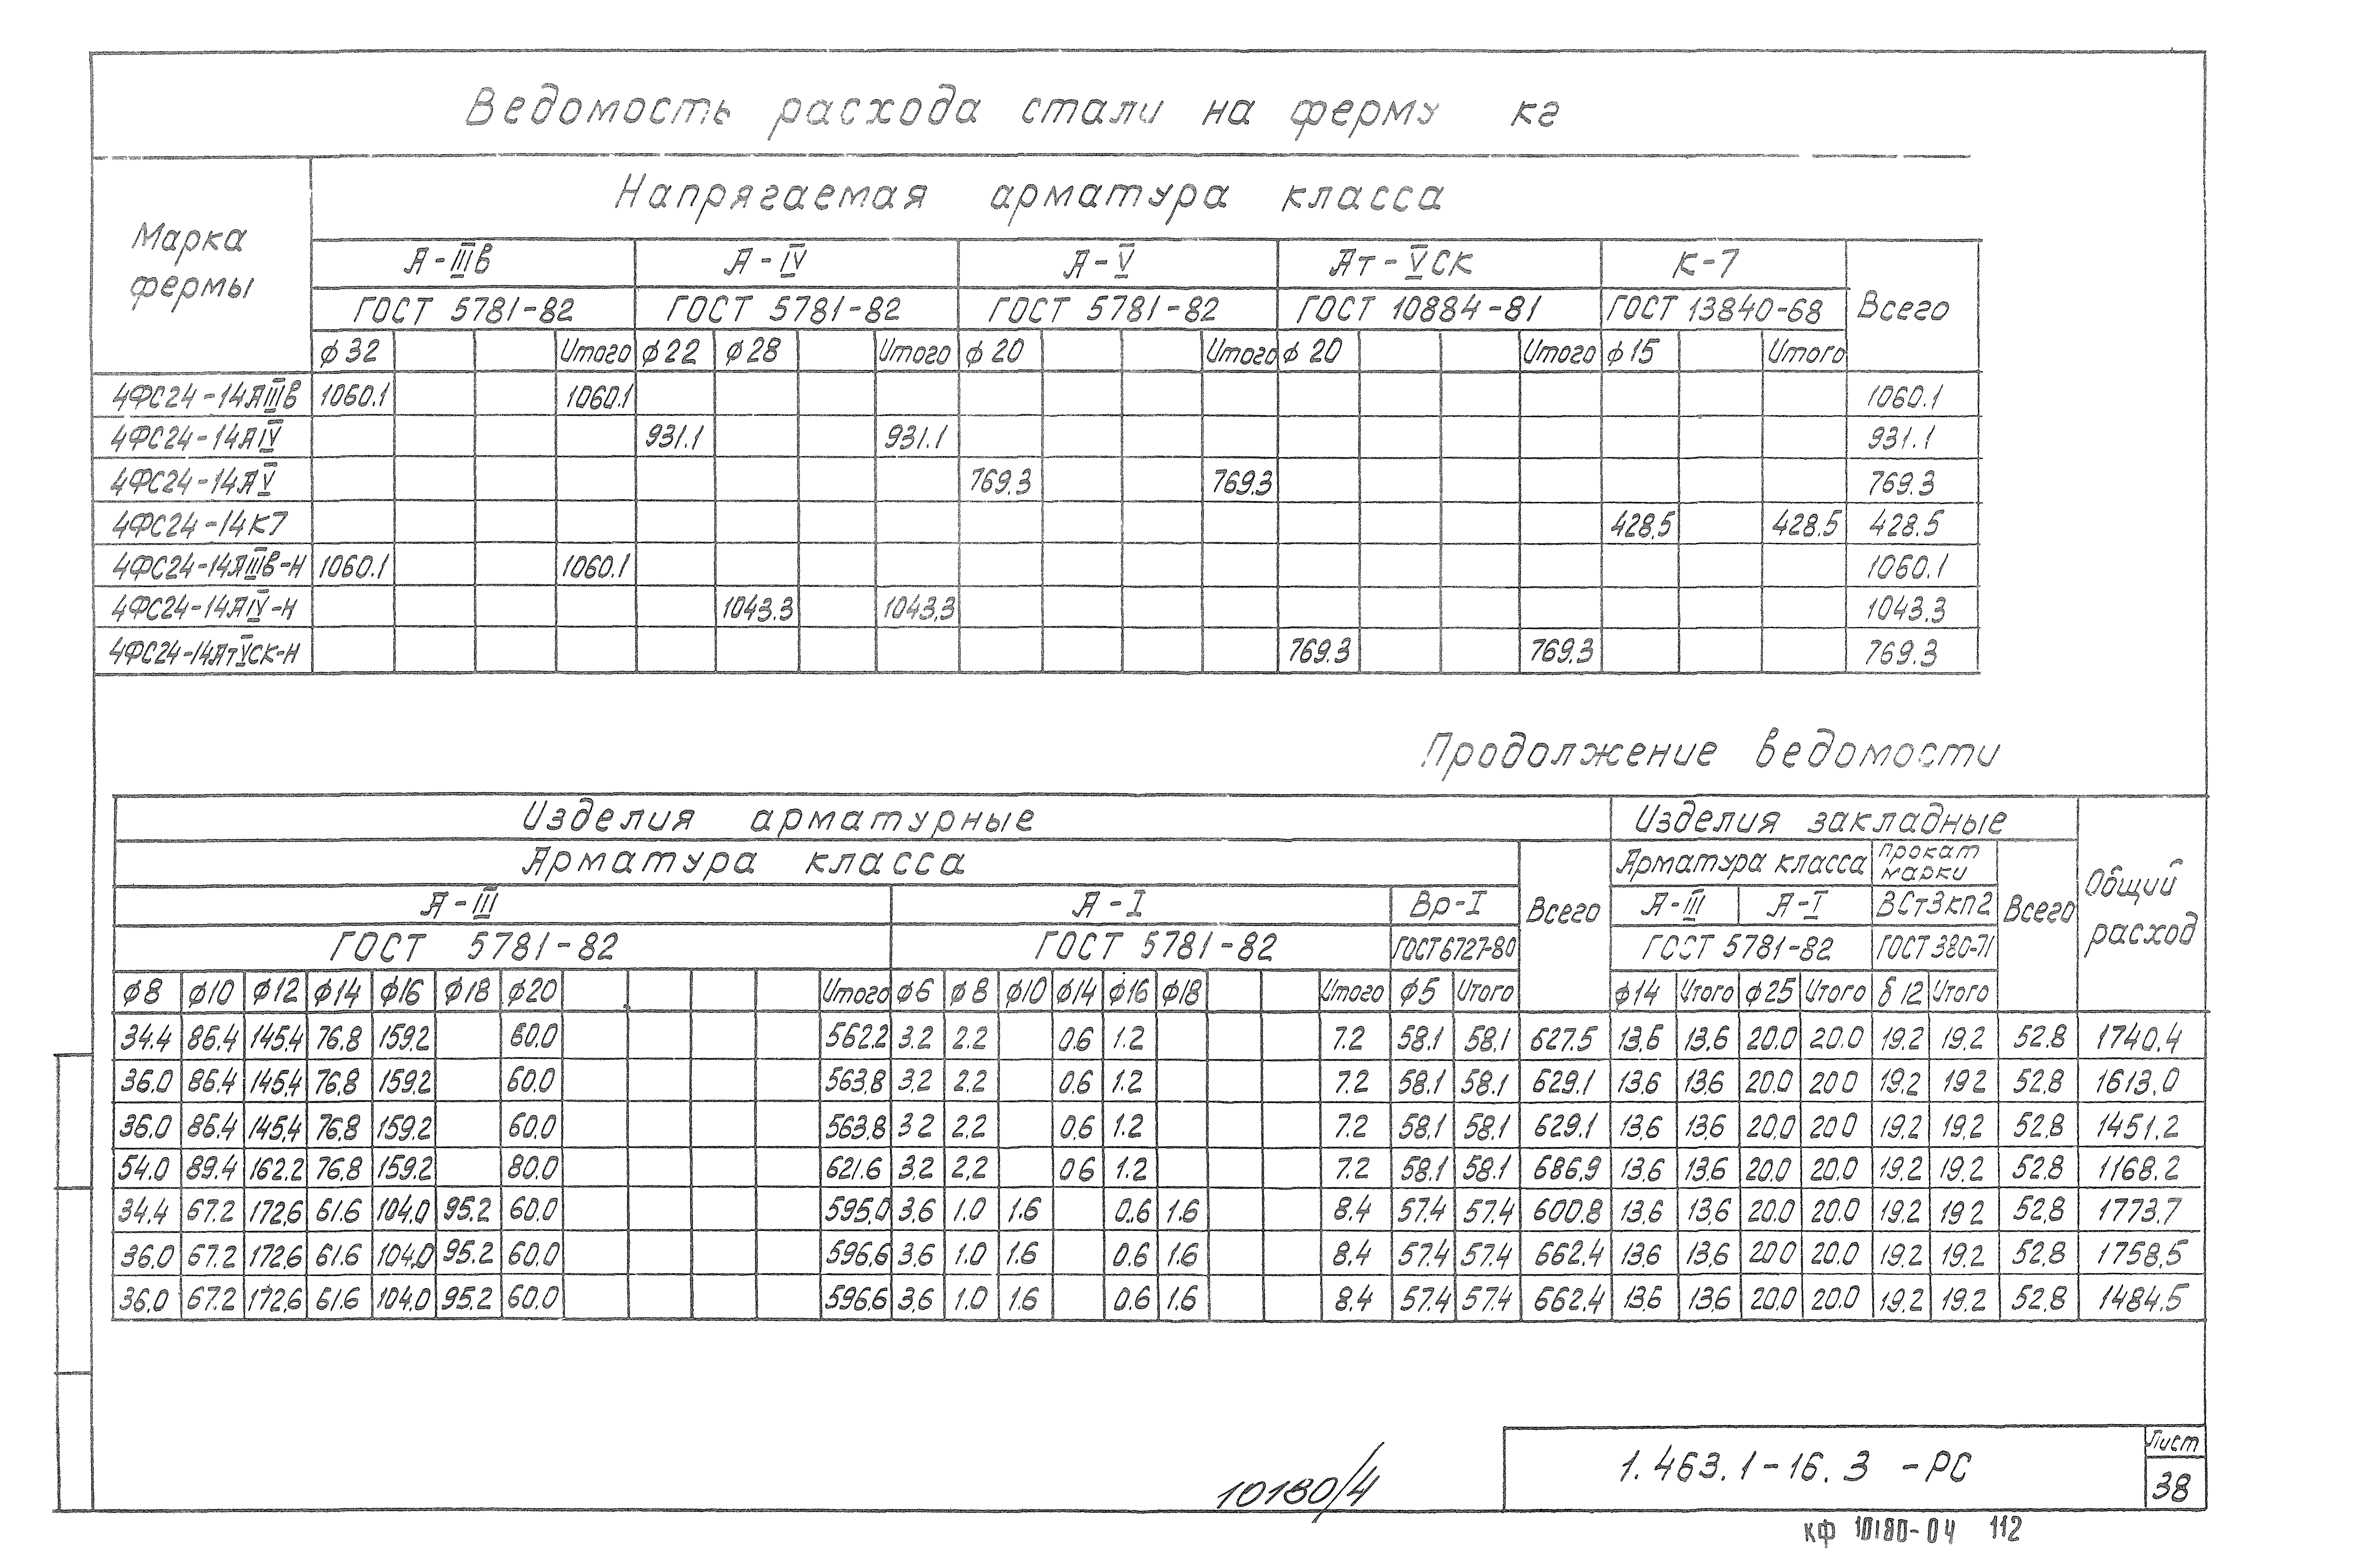 Ведомость расхода стали на ферму кг
Марка фермы
Напрягаемая арматура класса
А-IIIв А-IV А-V Ат-VСК К-7 Всего
ГОСТ 5781-82 ГОСТ 5781-82 ГОСТ 5781-82 ГОСТ 10884-81 ГОСТ 13840-68
ф32 Итого ф22 ф28 Итого ф20 Итого ф20 Итого ф15 Итого
4ФС24-14АIIIв 1060.1 1060.1 1060.1
4ФС24-14АIV 931.1 931.1 931.1
4ФС24-14АV 769.3 769.3 769.3
4ФС24-14К7 428.5 428.5 428.5
4ФС24-14АIIIв-Н 1060.1 1060.1 1060.1
4ФС24-14АIV-Н 1043.3 1043.3 1043.3
4ФС24-14АтVСК-Н 769.3 769.3 769.3
Продолжение ведомости
Изделия арматурные Изделия закладные Общий расход
Арматура класса Всего Арматура класса Прокат марки Всего
А-III А-I Вр-I А-III А-I ВСт3кп2
ГОСТ 5781-82 ГОСТ 5781-82 ГОСТ 6727-80 ГОСТ 5781-82 ГОСТ 380-71
ф8 ф10 ф12 ф14 ф16 ф18 ф20 Итого ф6 ф8 ф10 ф14 ф16 ф18 Итого ф5 Итого ф14 Итого ф25 Итого δ12 Итого
34.4 86.4 145.4 76.8 159.2 60.0 562.2 3.2 2.2 0.6 1.2 7.2 58.1 58.1 627.5 13.6 13.6 20.0 20.0 19.2 19.2 52.8 1740.4
36.0 86.4 145.4 76.8 159.2 60.0 563.8 3.2 2.2 0.6 1.2 7.2 58.1 58.1 629.1 13.6 13.6 20.0 20.0 19.2 19.2 52.8 1613.0
36.0 86.4 145.4 76.8 159.2 60.0 563.8 3.2 2.2 0.6 1.2 7.2 58.1 58.1 629.1 13.6 13.6 20.0 20.0 19.2 19.2 52.8 1451.2
54.0 89.4 162.2 76.8 159.2 80.0 621.6 3.2 2.2 0.6 1.2 7.2 58.1 58.1 686.9 13.6 13.6 20.0 20.0 19.2 19.2 52.8 1168.2
34.4 67.2 172.6 61.6 104.0 95.2 60.0 595.0 3.6 1.0 1.6 0.6 1.6 8.4 57.4 57.4 600.8 13.6 13.6 20.0 20.0 19.2 19.2 52.8 1773.7
36.0 67.2 172.6 61.6 104.0 95.2 60.0 596.6 3.6 1.0 1.6 0.6 1.6 8.4 57.4 57.4 662.4 13.6 13.6 20.0 20.0 19.2 19.2 52.8 1758.5
36.0 67.2 172.6 61.6 104.0 95.2 60.0 596.6 3.6 1.0 1.6 0.6 1.6 8.4 57.4 57.4 662.4 13.6 13.6 20.0 20.0 19.2 19.2 52.8 1484.5
10180/4
1.463.1-16.3 -РС
Лист
38
КФ 10180-04 112